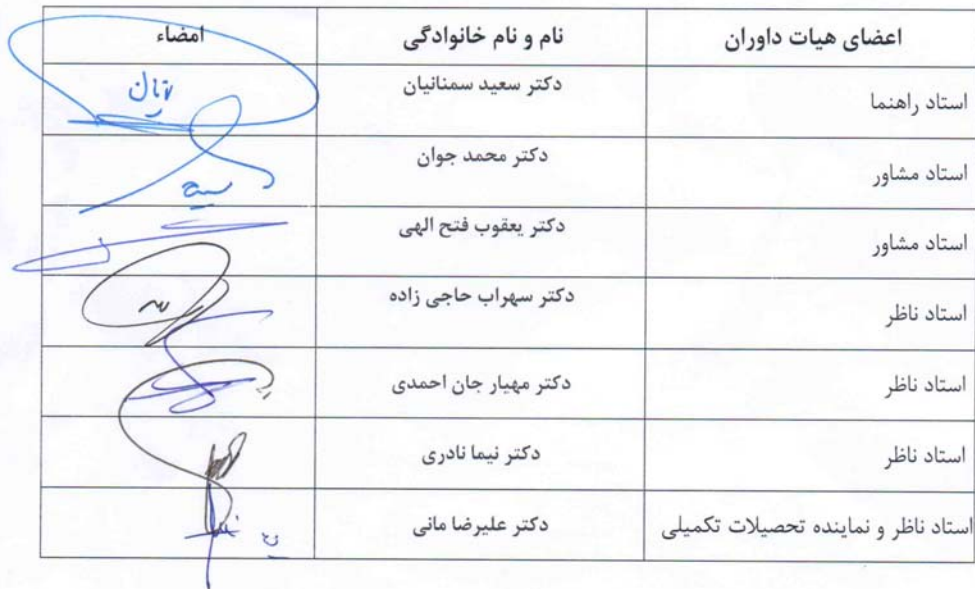 اعضای هیات داوران نام و نام خانوادگی امضاء
استاد راهنما دکتر سعید سمنانیان
استاد مشاور دکتر محمد جوان
استاد مشاور دکتر یعقوب فتح الهی
استاد ناظر دکتر سهراب حاجی زاده
استاد ناظر دکتر مهیار جان احمدی
استاد ناظر دکتر نیما نادری
استاد ناظر و نماینده تحصیلات تکمیلی دکتر علیرضا مانی